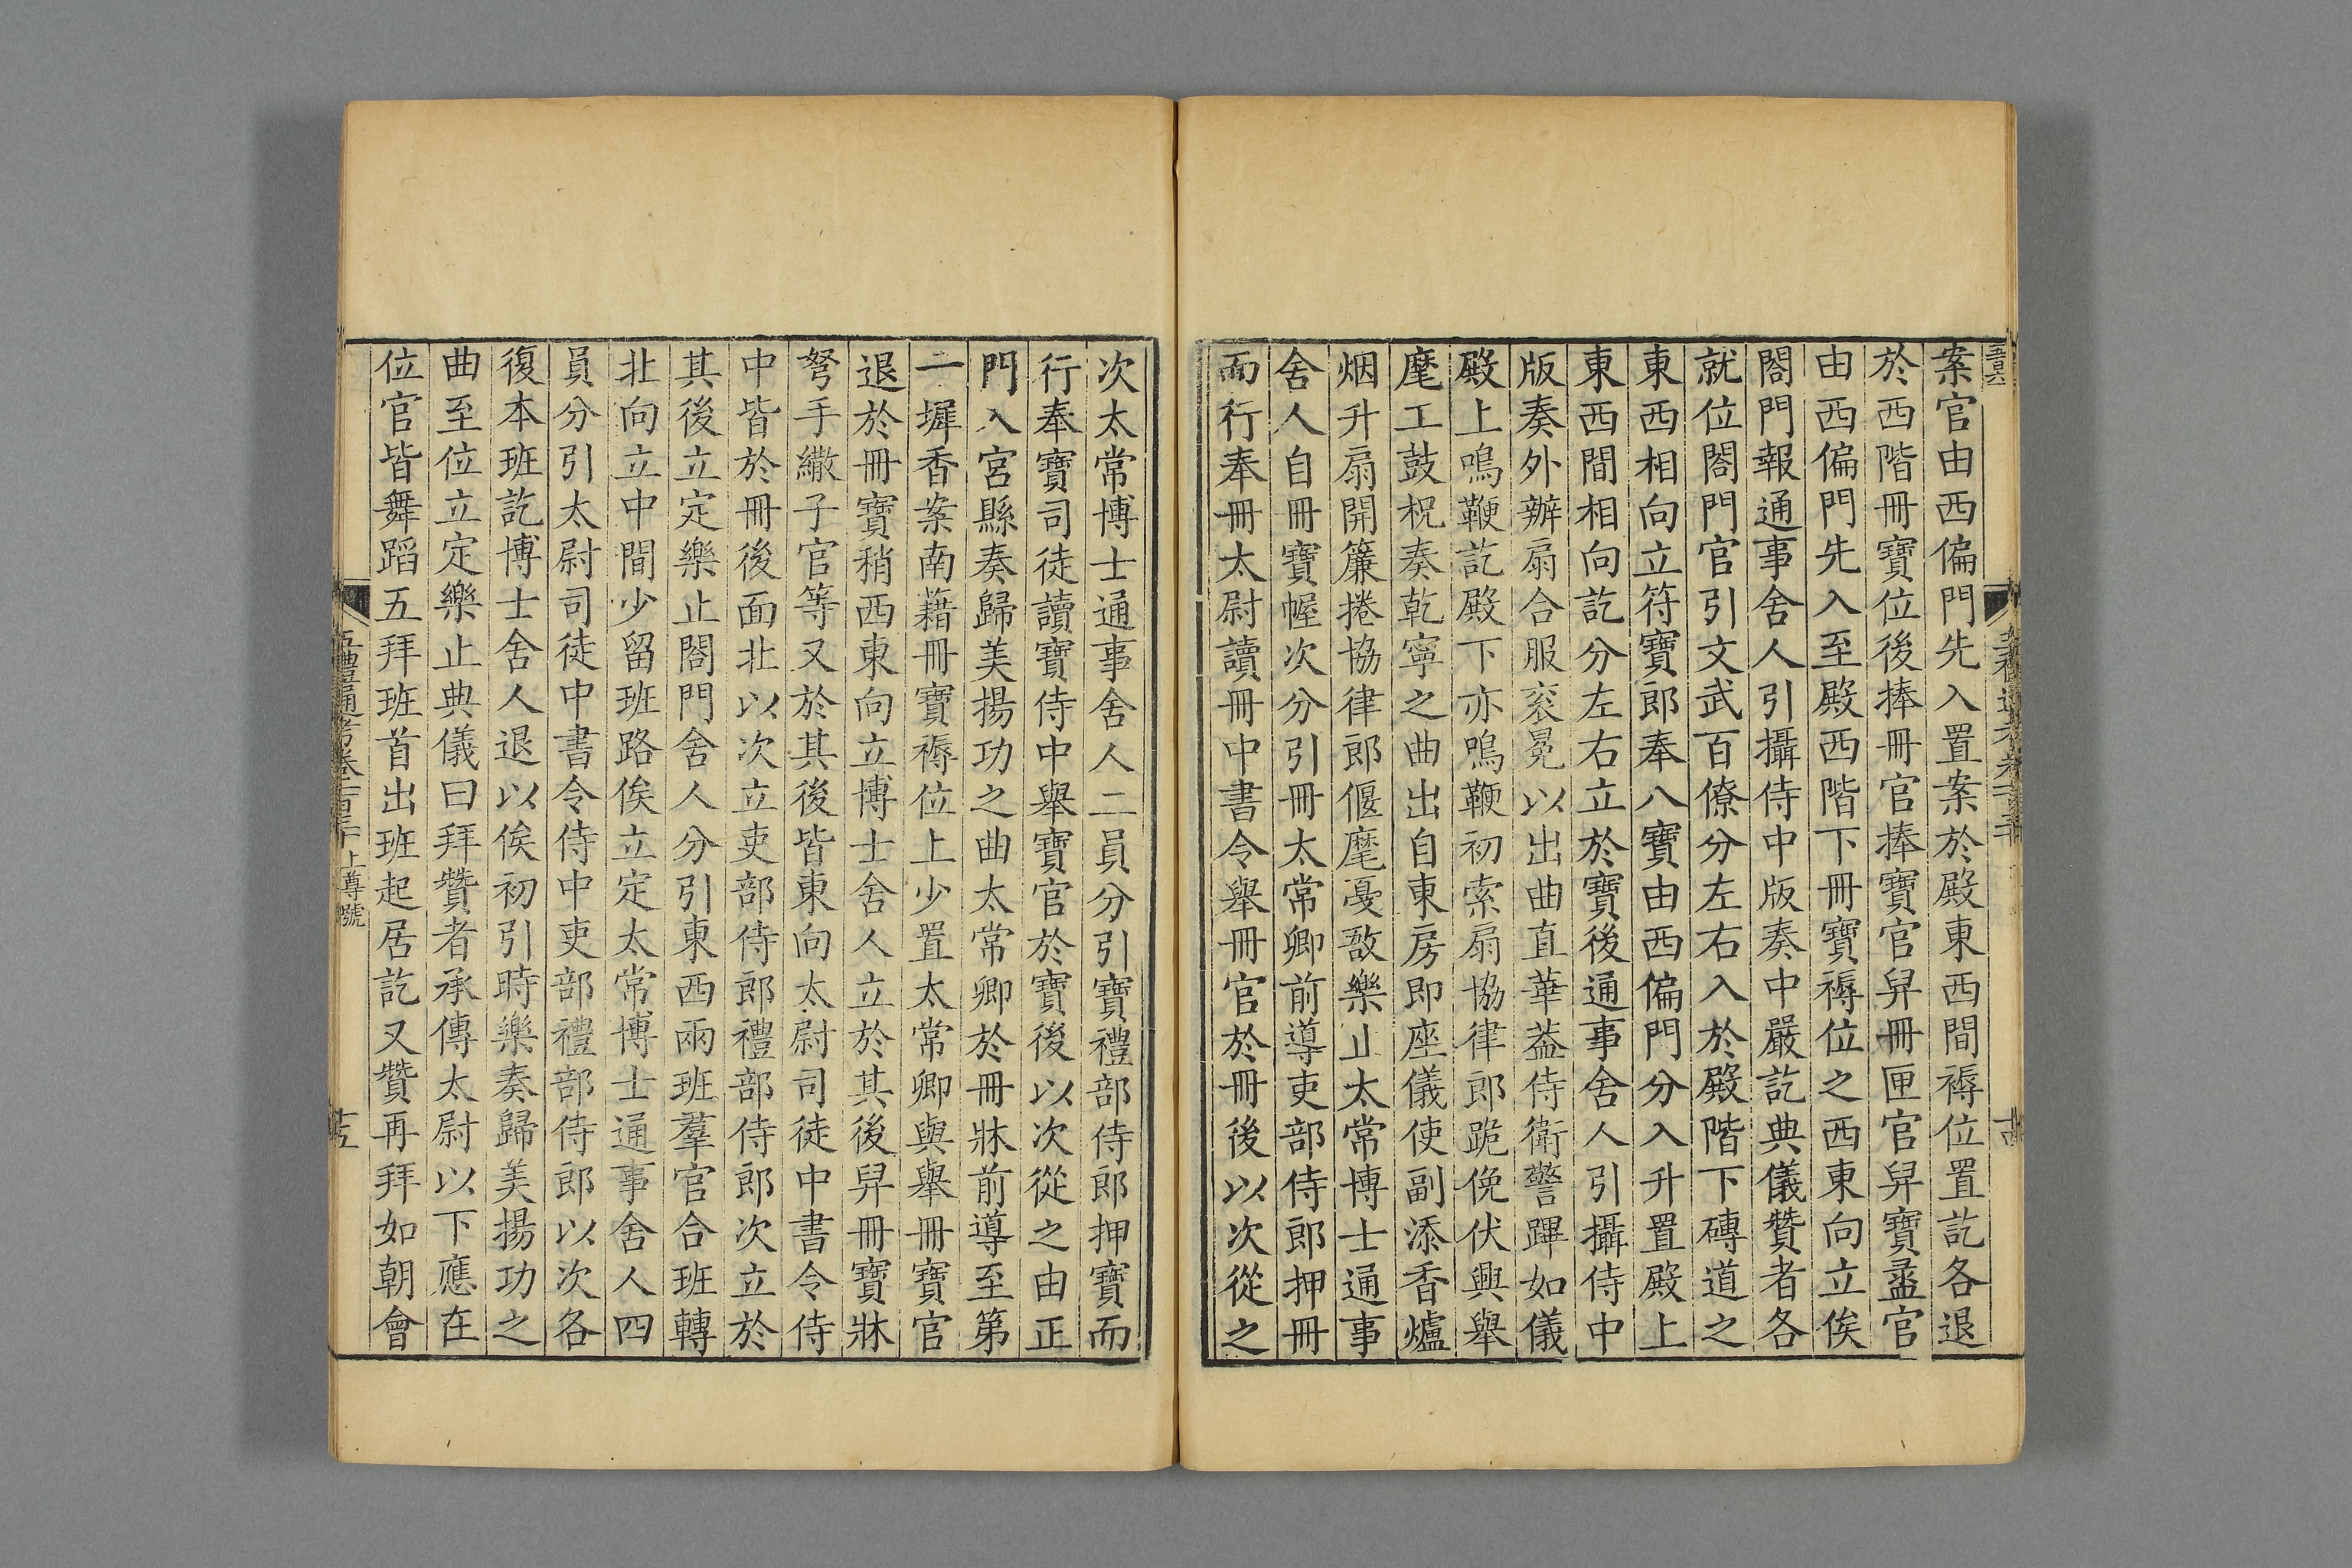 案官由西偏門先入置案於殿東西間褥位置訖各退
於西階冊寶位後捧冊官捧寶官舁冊匣官舁寶盝官
由西偏門先入至殿西階下冊寶褥位之西東向立俟
閤門報通事舍人引攝侍中版奏中嚴訖典儀贊者各
就位閤門官引文武百僚分左右入於殿階下磚道之
東西相向立符寶郎奉八寶由西偏門分入升置殿上
東西間相向訖分左右立於寶後通事舍人引攝侍中
版奏外辦扇合服衮冕以出曲直華蓋侍衛警蹕如儀
殿上鳴鞭訖殿下亦鳴鞭初索扇協律郎跪俛伏興舉
麾工鼓柷奏乾寧之曲出自東房即座儀使副添香爐
烟升扇開簾捲協律郎偃麾戞敔樂止太常博士通事
舍人自冊寶幄次分引冊太常卿前導吏部侍郎押冊
而行奉冊太尉讀冊中書令舉冊官於冊後以次從之
次太常博士通事舍人二員分引寶禮部侍郎押寶而
行奉寶司徒讀寶侍中舉寶官於寶後以次從之由正
門入宮縣奏歸美揚功之曲太常卿於冊牀前導至第
一墀香案南藉冊寶褥位上少置太常卿與舉冊寶官
退於冊寶稍西東向立博士舍人立於其後舁冊寶牀
弩手繖子官等又於其後皆東向太尉司徒中書令侍
中皆於冊後面北以次立吏部侍郎禮部侍郎次立於
其後立定樂止閤門舍人分引東西兩班羣官合班轉
北向立中間少留班路俟立定太常博士通事舍人四
員分引太尉司徒中書令侍中吏部禮部侍郎以次各
復本班訖博士舍人退以俟初引時樂奏歸美揚功之
曲至位立定樂止典儀曰拜贊者承傳太尉以下應在
位官皆舞蹈五拜班首出班起居訖又贊再拜如朝會
五禮通考卷一百三十 上尊號